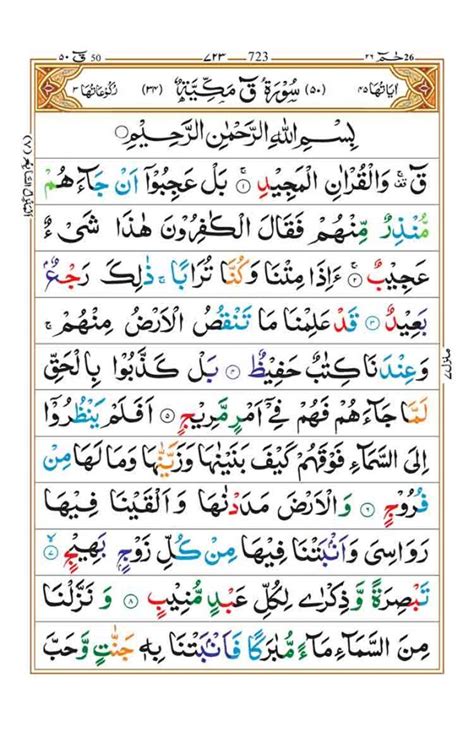 50 قٓ ۵۰ ۷۲۳ 723 حٰمٓ 26 ۲۶
اٰيَاتُهَا ۴۵ (۵۰) سُوْرَةُ قٓ مَكِّيَّةٌ (۳۴) رُكُوْعَاتُهَا ۳
بِسْمِ اللهِ الرَّحْمٰنِ الرَّحِيْمِ
قٓ ۚ وَالْقُرْاٰنِ الْمَجِيْدِ ۱ بَلْ عَجِبُوْٓا اَنْ جَآءَهُمْ
مُّنْذِرٌ مِّنْهُمْ فَقَالَ الْكٰفِرُوْنَ هٰذَا شَیْءٌ
عَجِيْبٌ ۲ ءَاِذَا مِتْنَا وَكُنَّا تُرَابًا ۚ ذٰلِكَ رَجْعٌۢ
بَعِيْدٌ ۳ قَدْ عَلِمْنَا مَا تَنْقُصُ الْاَرْضُ مِنْهُمْ ۚ
وَعِنْدَنَا كِتٰبٌ حَفِيْظٌ ۴ بَلْ كَذَّبُوْا بِالْحَقِّ
لَمَّا جَآءَهُمْ فَهُمْ فِیْٓ اَمْرٍ مَّرِيْجٍ ۵ اَفَلَمْ يَنْظُرُوْٓا
اِلَى السَّمَآءِ فَوْقَهُمْ كَيْفَ بَنَيْنٰهَا وَزَيَّنّٰهَا وَمَا لَهَا مِنْ
فُرُوْجٍ ۶ وَالْاَرْضَ مَدَدْنٰهَا وَاَلْقَيْنَا فِيْهَا
رَوَاسِیَ وَاَنْۢبَتْنَا فِيْهَا مِنْ كُلِّ زَوْجٍۢ بَهِيْجٍ ۷
تَبْصِرَةً وَّذِكْرٰى لِكُلِّ عَبْدٍ مُّنِيْبٍ ۸ وَنَزَّلْنَا
مِنَ السَّمَآءِ مَآءً مُّبٰرَكًا فَاَنْۢبَتْنَا بِهٖ جَنّٰتٍ وَّحَبَّ